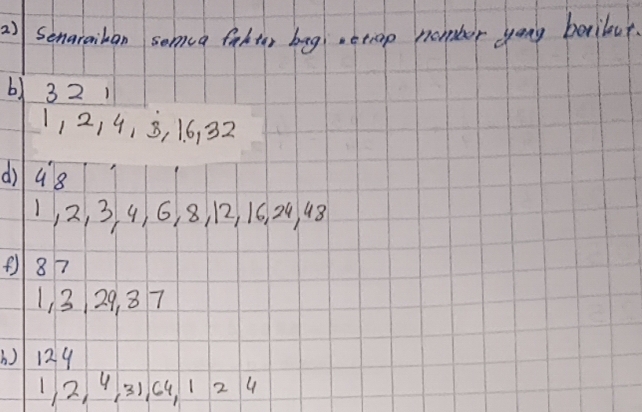 2) Senaraikan semua faktor bagi setiap nombor yang berikut.
b) 32
1, 2, 4, 8, 16, 32
d) 48
1, 2, 3, 4, 6, 8, 12, 16, 24, 48
f) 87
1, 3, 29, 87
h) 124
1, 2, 4, 31, 64, 1 2 4